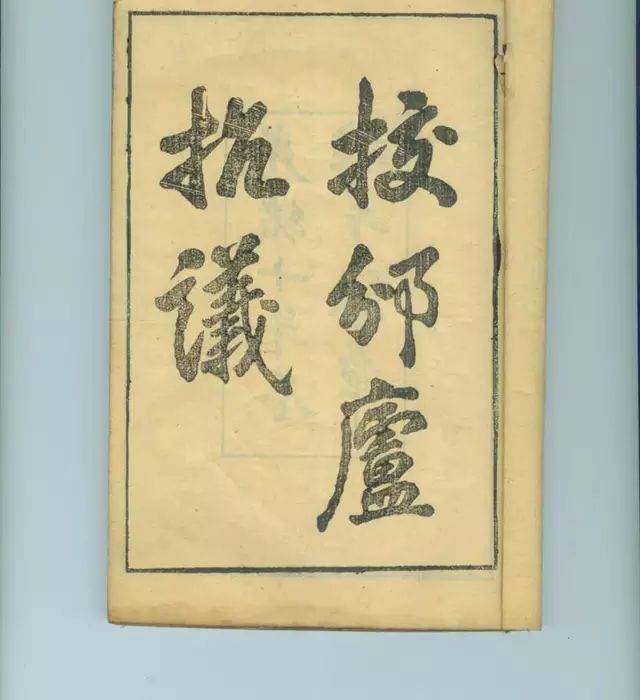 校邠廬
抗議